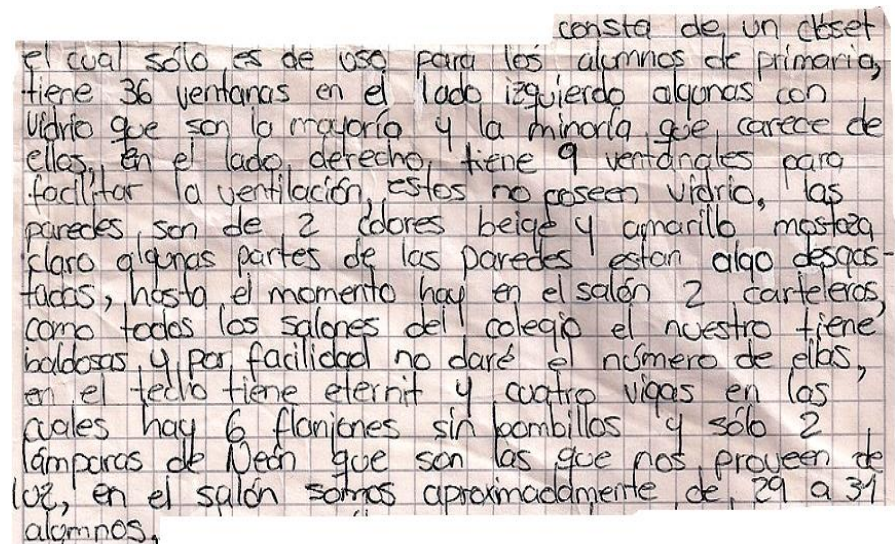 consta de un closet
el cual sólo es de uso para los alumnos de primaria,
tiene 36 ventanas en el lado izquierdo algunas con
vidrio que son la mayoría y la minoría que carece de
ellos, en el lado derecho tiene 9 ventanales para
facilitar la ventilación, estos no poseen vidrio, las
paredes son de 2 colores beige y amarillo mostaza
claro algunas partes de las paredes estan algo desgas-
tadas, hasta el momento hay en el salón 2 carteleros,
como todos los salones del colegio el nuestro tiene
baldosas y por facilidad no daré el número de ellas,
en el techo tiene eternit y cuatro vigas en las
cuales hay 6 flanjones sin bombillos y sólo 2
lámparas de Neón que son las que nos proveen de
luz, en el salón somos aproximadamente de 29 a 31
alumnos.